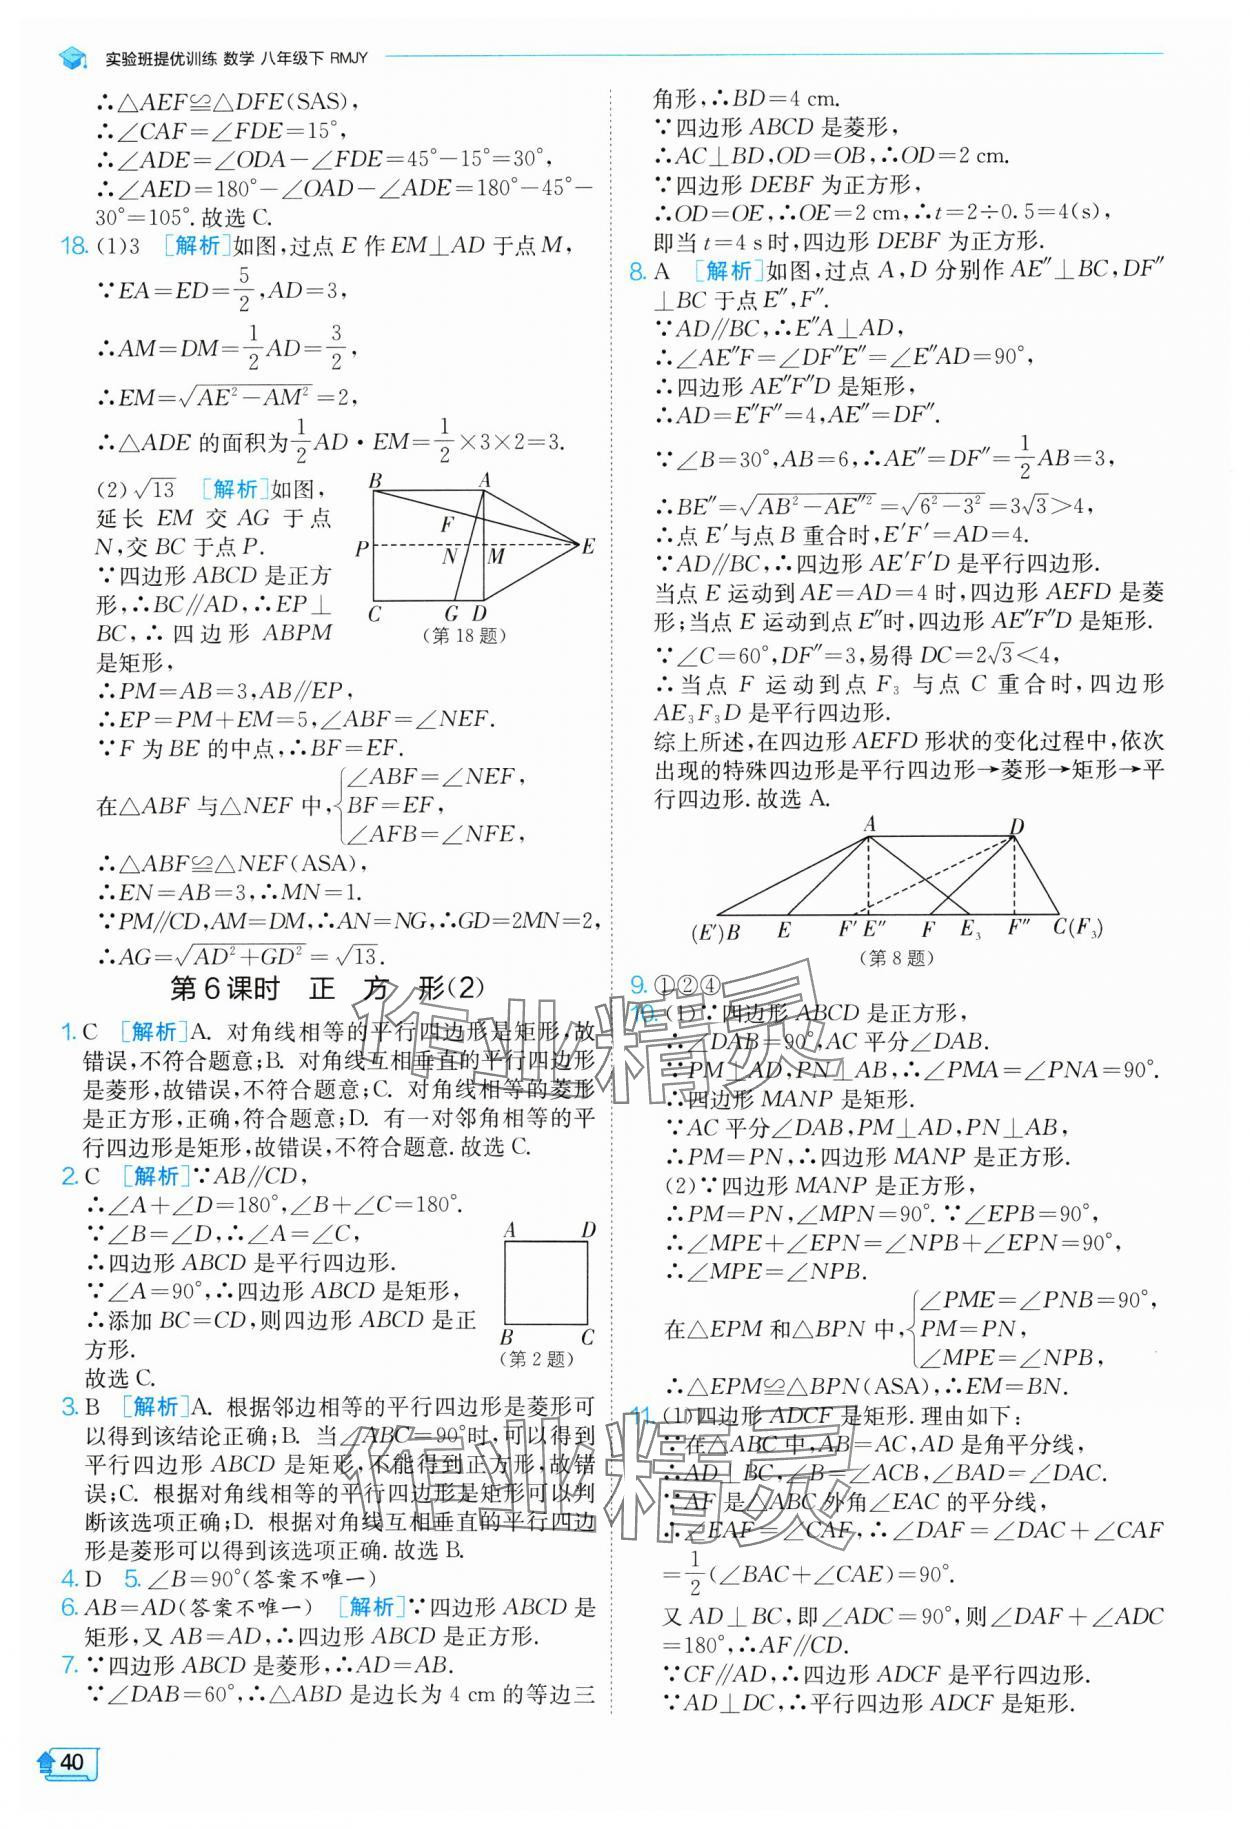 实验班提优训练 数学 八年级下 RMJY
∴△AEF≌△DFE(SAS),
∴∠CAF=∠FDE=15°,
∴∠ADE=∠ODA-∠FDE=45°-15°=30°,
∴∠AED=180°-∠OAD-∠ADE=180°-45°-
30°=105°.故选C.
18. (1)3 [解析]如图,过点 E 作 EM⊥AD 于点 M,
∵EA=ED=5/2,AD=3,
∴AM=DM=1/2AD=3/2,
∴EM=√(AE²-AM²)=2,
∴△ADE 的面积为1/2AD·EM=1/2×3×2=3.
(2)√13 [解析]如图,
延长 EM 交 AG 于点
N,交 BC 于点 P.
∵四边形 ABCD 是正方
形,∴BC∥AD,∴EP⊥
BC,∴四边形 ABPM
是矩形,
B A F P N M E C G D
(第 18 题)
∴PM=AB=3,AB∥EP,
∴EP=PM+EM=5,∠ABF=∠NEF.
∵F 为 BE 的中点,∴BF=EF.
在△ABF 与△NEF 中,{∠ABF=∠NEF,
BF=EF,
∠AFB=∠NFE,
∴△ABF≌△NEF(ASA),
∴EN=AB=3,∴MN=1.
∵PM∥CD,AM=DM,∴AN=NG,∴GD=2MN=2,
∴AG=√(AD²+GD²)=√13.
第 6 课时 正 方 形(2)
1. C [解析]A. 对角线相等的平行四边形是矩形,故
错误,不符合题意;B. 对角线互相垂直的平行四边形
是菱形,故错误,不符合题意;C. 对角线相等的菱形
是正方形,正确,符合题意;D. 有一对邻角相等的平
行四边形是矩形,故错误,不符合题意.故选 C.
2. C [解析]∵AB∥CD,
∴∠A+∠D=180°,∠B+∠C=180°.
∵∠B=∠D,∴∠A=∠C,
∴四边形 ABCD 是平行四边形.
∵∠A=90°,∴四边形 ABCD 是矩形,
∴添加 BC=CD,则四边形 ABCD 是正
方形.
故选 C.
A D
B C
(第 2 题)
3. B [解析]A. 根据邻边相等的平行四边形是菱形可
以得到该结论正确;B. 当∠ABC=90°时,可以得到
平行四边形 ABCD 是矩形,不能得到正方形,故错
误;C. 根据对角线相等的平行四边形是矩形可以判
断该选项正确;D. 根据对角线互相垂直的平行四边
形是菱形可以得到该选项正确.故选 B.
4. D 5. ∠B=90°(答案不唯一)
6. AB=AD(答案不唯一) [解析]∵四边形 ABCD 是
矩形,又 AB=AD,∴四边形 ABCD 是正方形.
7. ∵四边形 ABCD 是菱形,∴AD=AB.
∵∠DAB=60°,∴△ABD 是边长为 4 cm 的等边三
角形,∴BD=4 cm.
∵四边形 ABCD 是菱形,
∴AC⊥BD,OD=OB,∴OD=2 cm.
∵四边形 DEBF 为正方形,
∴OD=OE,∴OE=2 cm,∴t=2÷0.5=4(s),
即当 t=4 s时,四边形 DEBF 为正方形.
8. A [解析]如图,过点 A,D 分别作 AE″⊥BC,DF″
⊥BC 于点 E″,F″.
∵AD∥BC,∴E″A⊥AD,
∴∠AE″F=∠DF″E″=∠E″AD=90°,
∴四边形 AE″F″D 是矩形,
∴AD=E″F″=4,AE″=DF″.
∵∠B=30°,AB=6,∴AE″=DF″=1/2AB=3,
∴BE″=√(AB²-AE″²)=√(6²-3²)=3√3>4,
∴点 E′与点 B 重合时,E′F′=AD=4.
∵AD∥BC,∴四边形 AE′F′D 是平行四边形.
当点 E 运动到 AE=AD=4 时,四边形 AEFD 是菱
形;当点 E 运动到点 E″时,四边形 AE″F″D 是矩形.
∵∠C=60°,DF″=3,易得 DC=2√3<4,
∴当点 F 运动到点 F₃ 与点 C 重合时,四边形
AE₃F₃D 是平行四边形.
综上所述,在四边形 AEFD 形状的变化过程中,依次
出现的特殊四边形是平行四边形→菱形→矩形→平
行四边形.故选 A.
A D
(E′)B E F′E″ F E₃ F″ C(F₃)
(第 8 题)
9. ①②④
10. (1)∵四边形 ABCD 是正方形,
∴∠DAB=90°,AC 平分∠DAB.
∵PM⊥AD,PN⊥AB,∴∠PMA=∠PNA=90°.
∴四边形 MANP 是矩形.
∵AC 平分∠DAB,PM⊥AD,PN⊥AB,
∴PM=PN,∴四边形 MANP 是正方形.
(2)∵四边形 MANP 是正方形,
∴PM=PN,∠MPN=90°.∵∠EPB=90°,
∴∠MPE+∠EPN=∠NPB+∠EPN=90°,
∴∠MPE=∠NPB.
在△EPM 和△BPN 中,{∠PME=∠PNB=90°,
PM=PN,
∠MPE=∠NPB,
∴△EPM≌△BPN(ASA),∴EM=BN.
11. (1)四边形 ADCF 是矩形.理由如下:
∵在△ABC 中,AB=AC,AD 是角平分线,
∴AD⊥BC,∠B=∠ACB,∠BAD=∠DAC.
∵AF 是△ABC 外角∠EAC 的平分线,
∴∠EAF=∠CAF,∴∠DAF=∠DAC+∠CAF
=1/2(∠BAC+∠CAE)=90°.
又 AD⊥BC,即∠ADC=90°,则∠DAF+∠ADC
=180°,∴AF∥CD.
∵CF∥AD,∴四边形 ADCF 是平行四边形.
∵AD⊥DC,∴平行四边形 ADCF 是矩形.
作业精灵
作业精灵
40